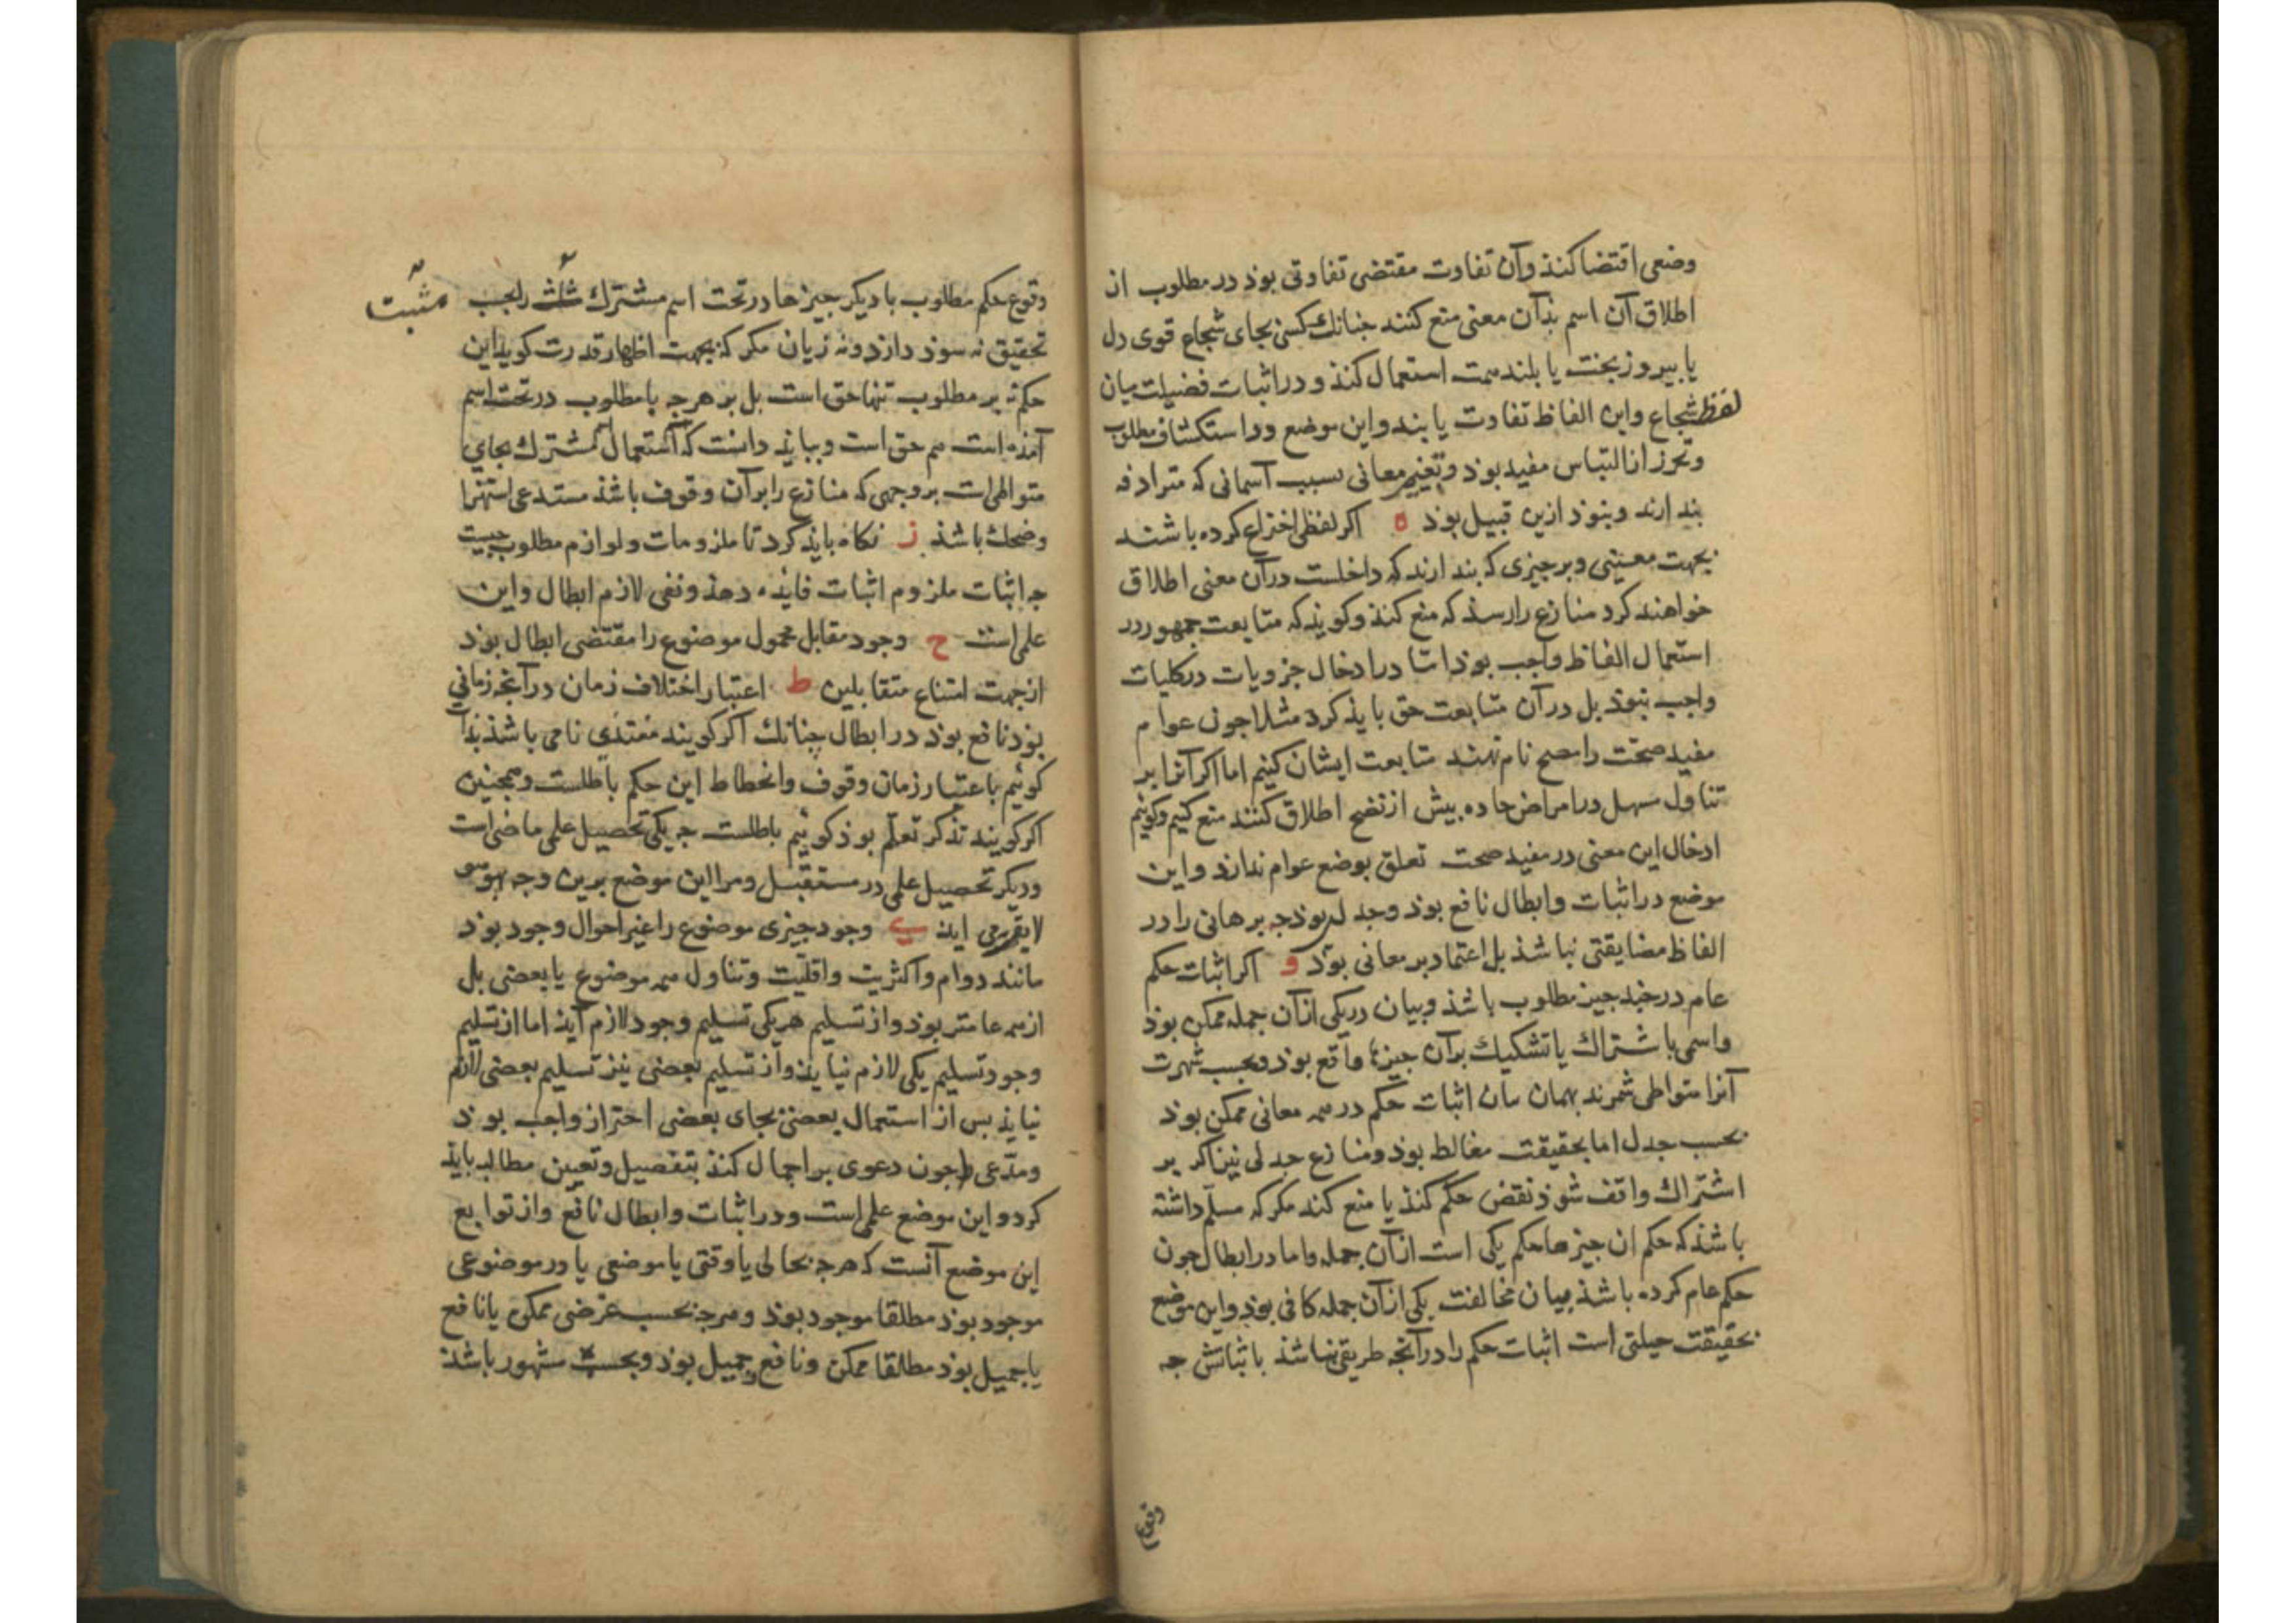 وضعی اقتضا کنذ وآن تفاوت مقتضی تفاوتی بوذ در مطلوب از
اطلاق آن اسم بذآن معنی منع کنند جنانك کسی بجای شجاع قوی دل
یا بیروز بخت یا بلند همت استعمال کنذ و در اثبات فضیلت میان
لفظ شجاع واین الفاظ تفاوت یابند واین موضع در استکشاف مطلوب
وتحرز از التباس مفید بوذ وتغییر معانی بسبب آسمانی که مترادفه
بندارند ونبوذ ازین قبیل بوذ ه اکر لفظی اختراع کرده باشند
بجهت معنیی وبر جیزی که بندارند که داخلست در آن معنی اطلاق
خواهند کرد منازع را رسذ که منع کنذ وکویذ که متابعت جمهور در
استعمال الفاظ واجب بوذ اما در ادخال جزویات در کلیات
واجب نبوذ بل در آن متابعت حق بایذ کرد مثلا جون عوام
مفید صحت را مصح نام نهند متابعت ایشان کنیم اما اکر آنرا بر
تناول مسهل در امراض حاده بیش از نضج اطلاق کنند منع کنیم وکوئیم
ادخال این معنی در مفید صحت تعلق بوضع عوام ندارد واین
موضع در اثبات وابطال نافع بوذ وجدلی بوذ جه برهانی را در
الفاظ مضایقتی نباشذ بل اعتماد بر معانی بوذ و اکر اثبات حکم
عام در جند جیز مطلوب باشذ وبیان در یکی از آن جمله ممکن بوذ
واسمی باشتراك یا تشکیك برآن جیزها واقع بوذ وبحسب شهرت
آنرا متواطی شمرند بهمان بیان اثبات حکم در همه معانی ممکن بوذ
بحسب جدل اما بحقیقت مغالط بوذ ومنازع جدلی نیز اکر بر
اشتراك واقف شوذ نقض حکم کنذ یا منع کند مکر که مسلم داشته
باشذ که حکم ان جیزها حکم یکی است از آن جمله واما در ابطال جون
حکم عام کرده باشذ بیان مخالفت یکی از آن جمله کافی بوذ واین موضع
بحقیقت حیلتی است اثبات حکم را در آنجه طریقی نباشذ باثباتش جه
وقوع
وقوع حکم مطلوب با دیکر جیزها در تحت اسم مشترك را بحب
مثبت
تحقیق نه سوذ دارد ونه زیان مکر که بجهت اظهار قدرت کویذ این
حکم نه بر مطلوب تنها حق است بل بر هرجه با مطلوب در تحت اسم
آمذه است هم حق است وببایذ دانست که استعمال اسم مشترك بجای
متواطی است بر وجهی که منازع را بر آن وقوف باشذ مستدعی استهزا
وضحك باشذ ز نکاه بایذ کرد تا ملزومات ولوازم مطلوب جیست
جه اثبات ملزوم اثبات فایذه دهذ ونفی لازم ابطال واین
علمی است ح وجود مقابل محمول موضوع را مقتضی ابطال بوذ
از جهت امتناع متقابلین ط اعتبار اختلاف زمان در آنجه زمانی
بوذ نافع بوذ در ابطال جنانك اکر کویند مغتذی نامی باشذ بذات
کوئیم باعتبار زمان وقوف وانحطاط این حکم باطلست وهمجنین
اکر کویند تذکر تعلم بوذ کوئیم باطلست جه یکی تحصیل علمی ماضی است
ودیکر تحصیل علمی در مستقبل ومر این موضع برین وجه
وجود جیزی موضوع را غیر احوال وجود بوذ
مانند دوام واکثریت واقلیت وتناول همه موضوع یا بعضی بل
از همه عامتر بوذ واز تسلیم هر یکی تسلیم وجود لازم آید اما از تسلیم
وجود تسلیم یکی لازم نیایذ واز تسلیم بعضی نیز تسلیم بعضی لازم
نیایذ بس از استعمال بعضی بجای بعضی احتراز واجب بوذ
ومدعی را جون دعوی بر اجمال کنذ بتفصیل وتعیین مطالبه بایذ
کرد واین موضع علمی است ودر اثبات وابطال نافع واز توابع
این موضع آنست که هرجه بحالی یا وقتی یا موضعی یا در موضوعی
موجود بوذ مطلقا موجود بوذ وهرجه بحسب غرضی ممکن یا نافع
یا جمیل بوذ مطلقا ممکن ونافع وجمیل بوذ وبحسب مشهور باشذ